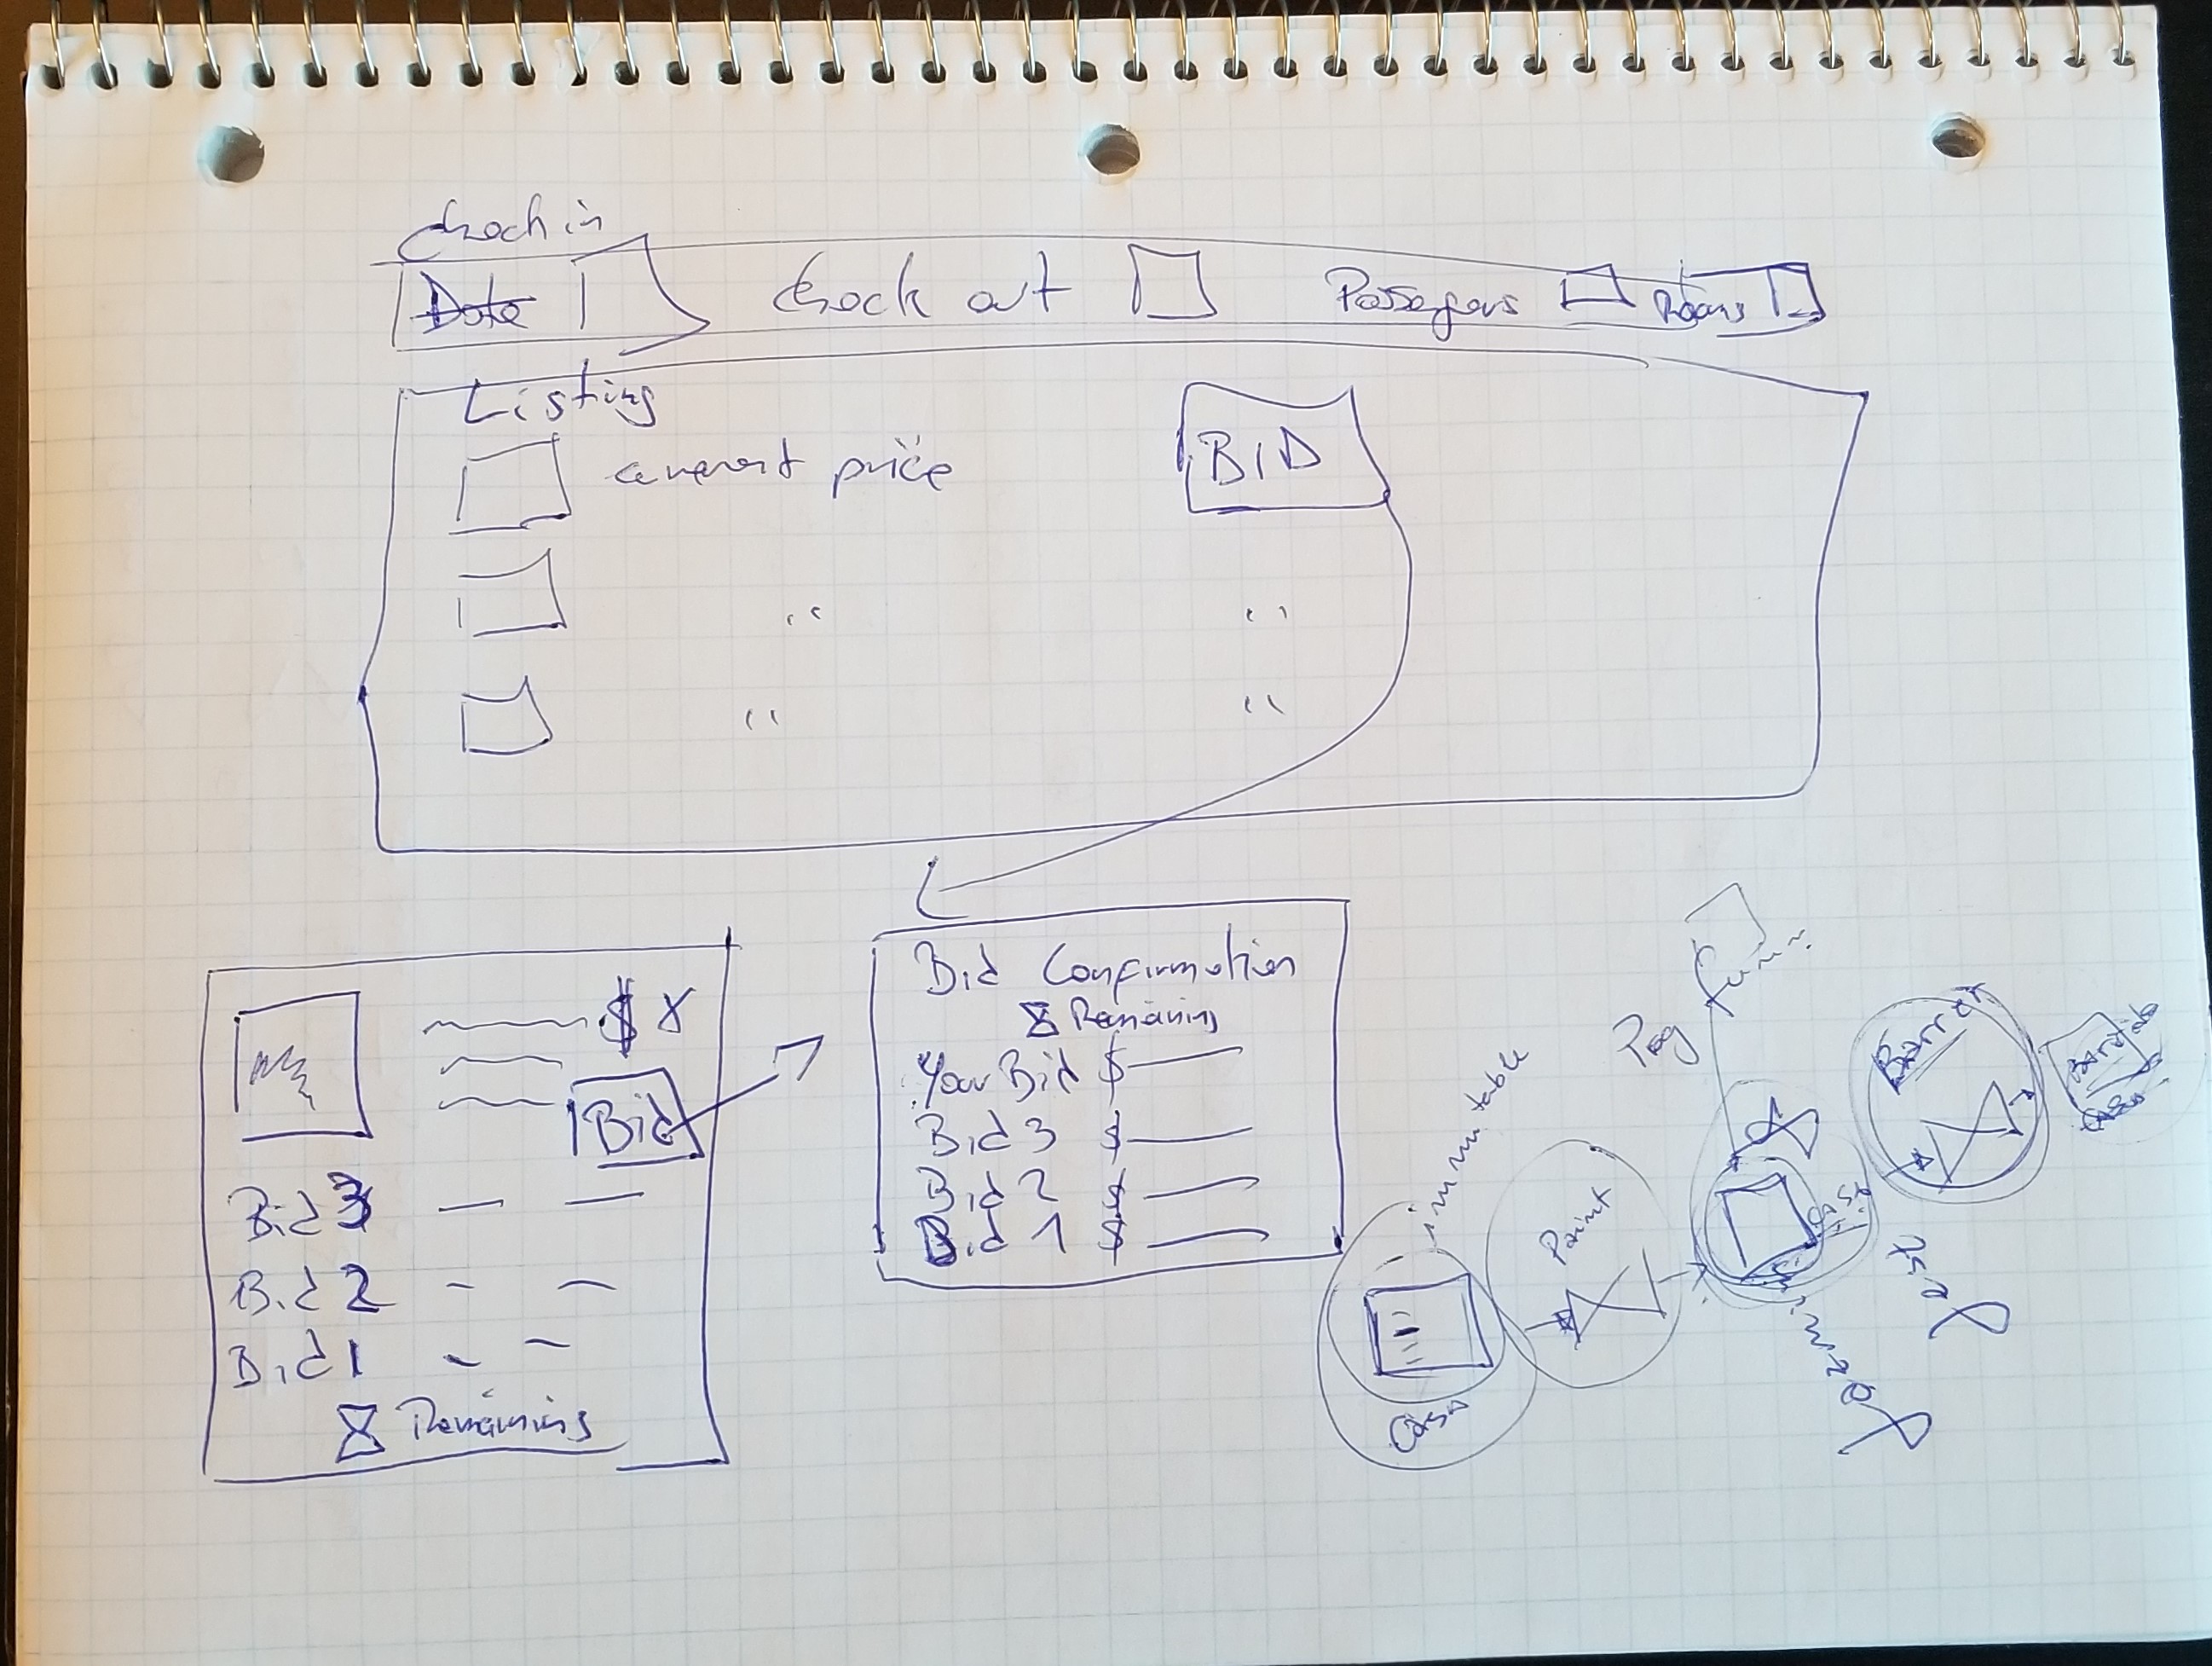 Check in
Date Check out Passengers Rooms
Listing
current price BID
" "
" "
$ 8
Bid
Bid 3
Bid 2
Bid 1
Remaining
Bid Confirmation
Remaining
Your Bid $
Bid 3 $
Bid 2 $
Bid 1 $
immutable
Paint